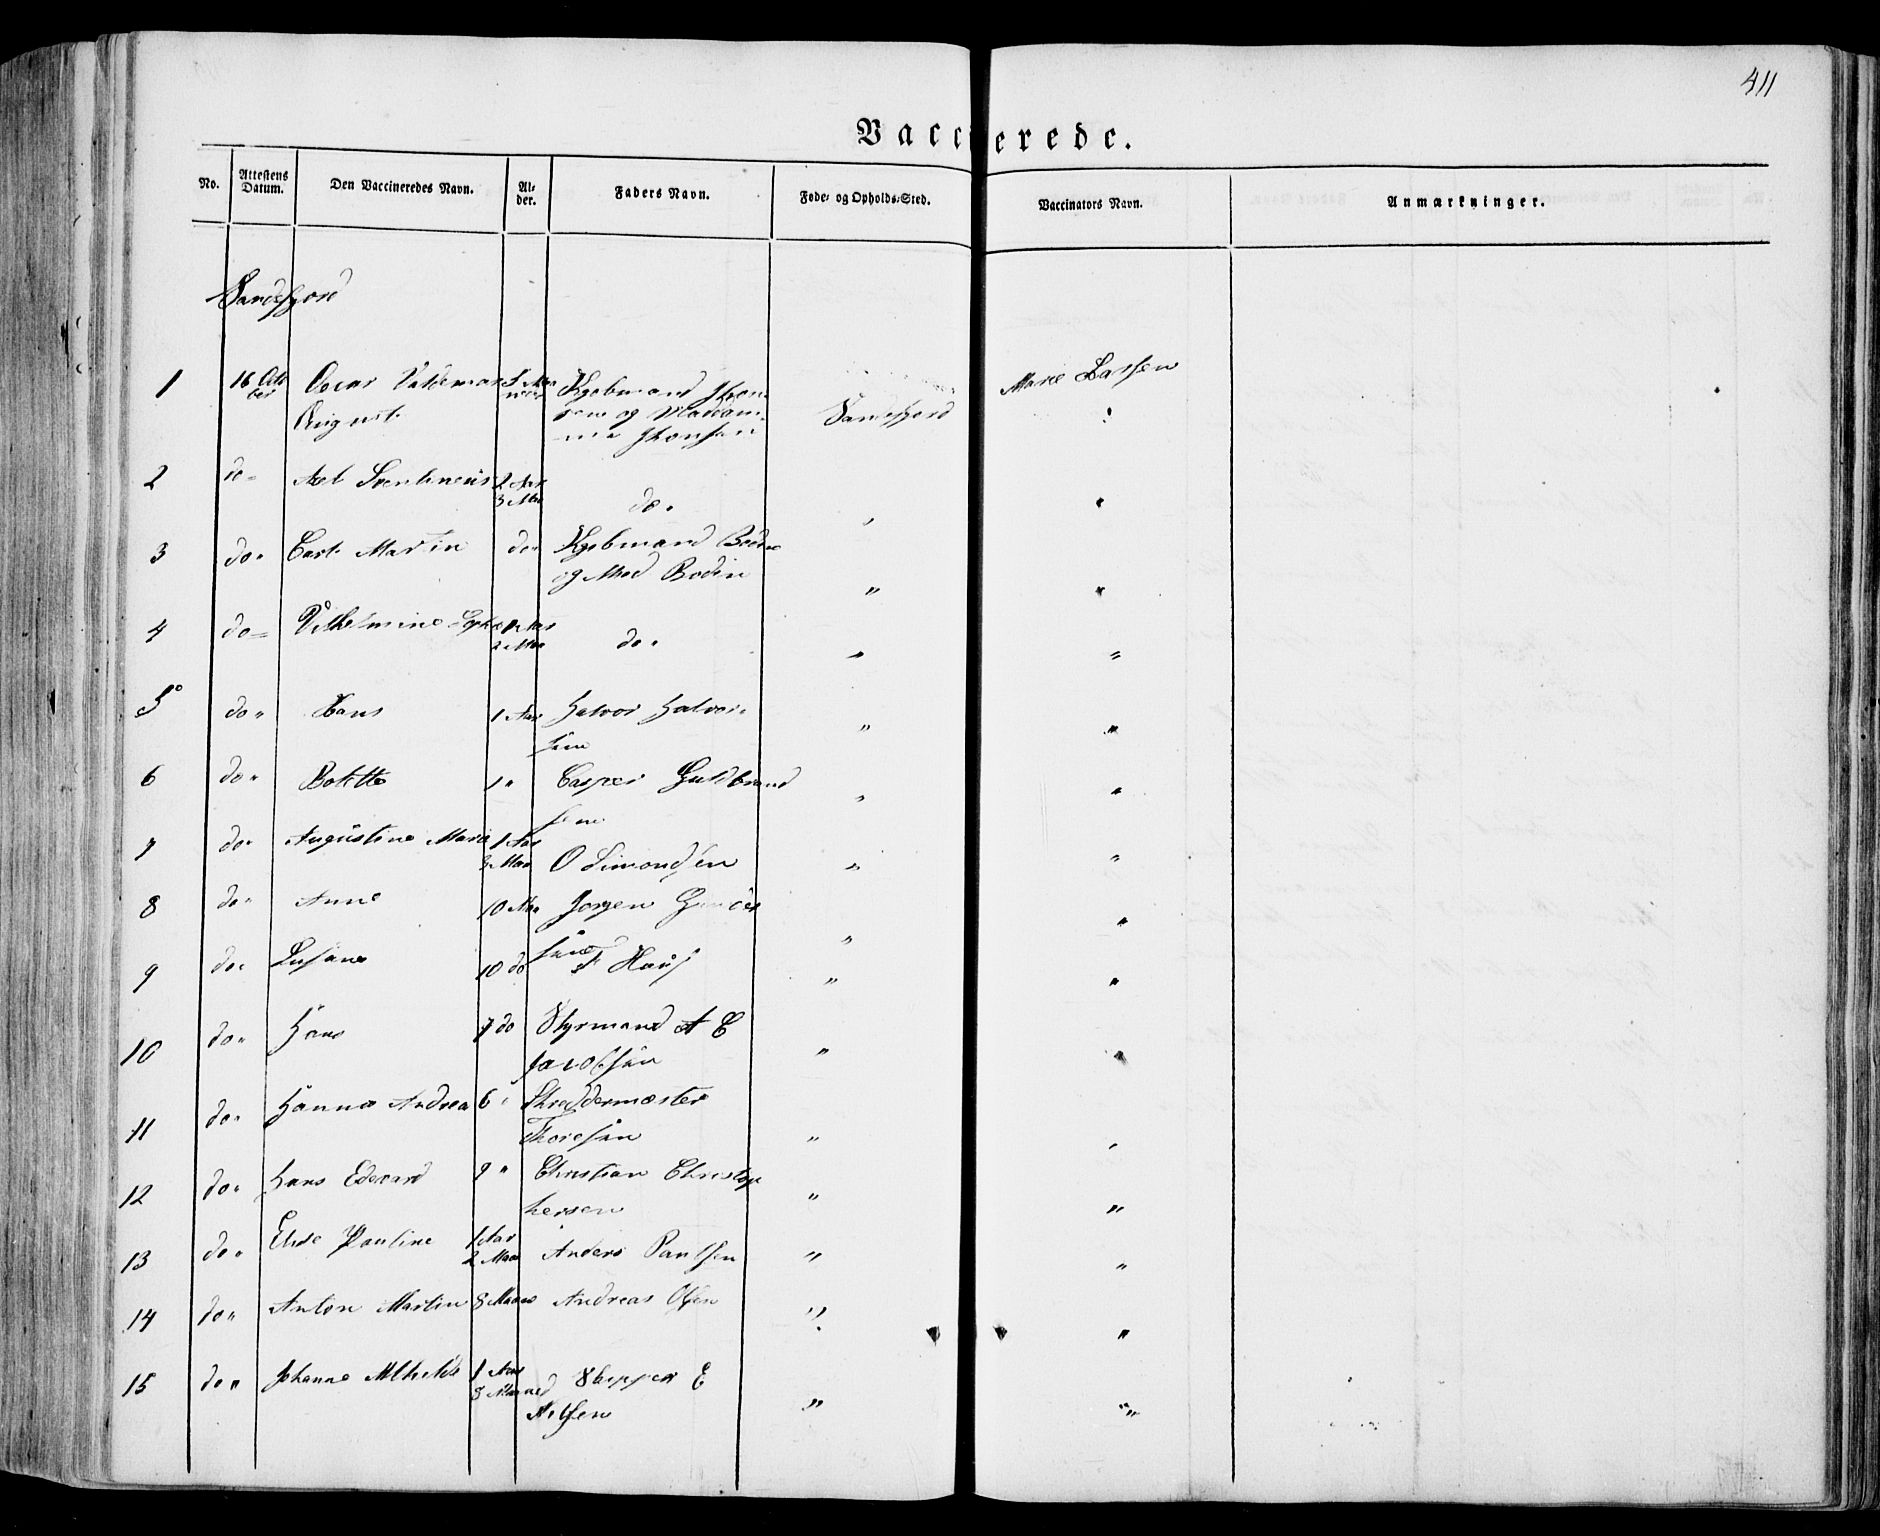 411
Vaccinerede.
No. Attestens Datum. Den Vaccineredes Navn. Al-der. Faders Navn. Føde- og Opholds-Sted. Vaccinators Navn. Anmærkninger.
Sandefjord
1 16 Octo Oscar Valdemar 5 Maa Kjøbmand Jhon Marie Larsen
ber August neder sen og Madam Sandefjord "
Jhonsen
2 do Axel 2 Aar
3 Maa do "
3 do Carl Martin do Kjøbmand Bodin
og Mad Bodin " "
4 do Vilhelmine Sophie Aar
2 Maa do " "
5 do Hans 1 Aar Halvor Halvor
sen " "
6 do Bolette 1 " Casper Guldbrand
sen " "
7 do Augustine Marie 1 Aar
3 Maa O Simondsen " "
8 do Anne 10 Maa Jorgen Gunder
sen " "
9 do Susane 10 do F Hauf " "
10 do Hans 7 do Styrmand A C
Jacobsen " "
11 do Hanna Andrea 6 " Skreddermester
Thoresen " "
12 do Hans Edevard 9 " Christian Christop
hersen " "
13 do Elise Pauline 1 Aar
2 Maa Anders Paulsen " "
14 do Anton Martin 8 Maane Andreas Olsen " "
15 do Johanne Mthilde 1 Aar Skipper E
8 Maaned Nilsen " "